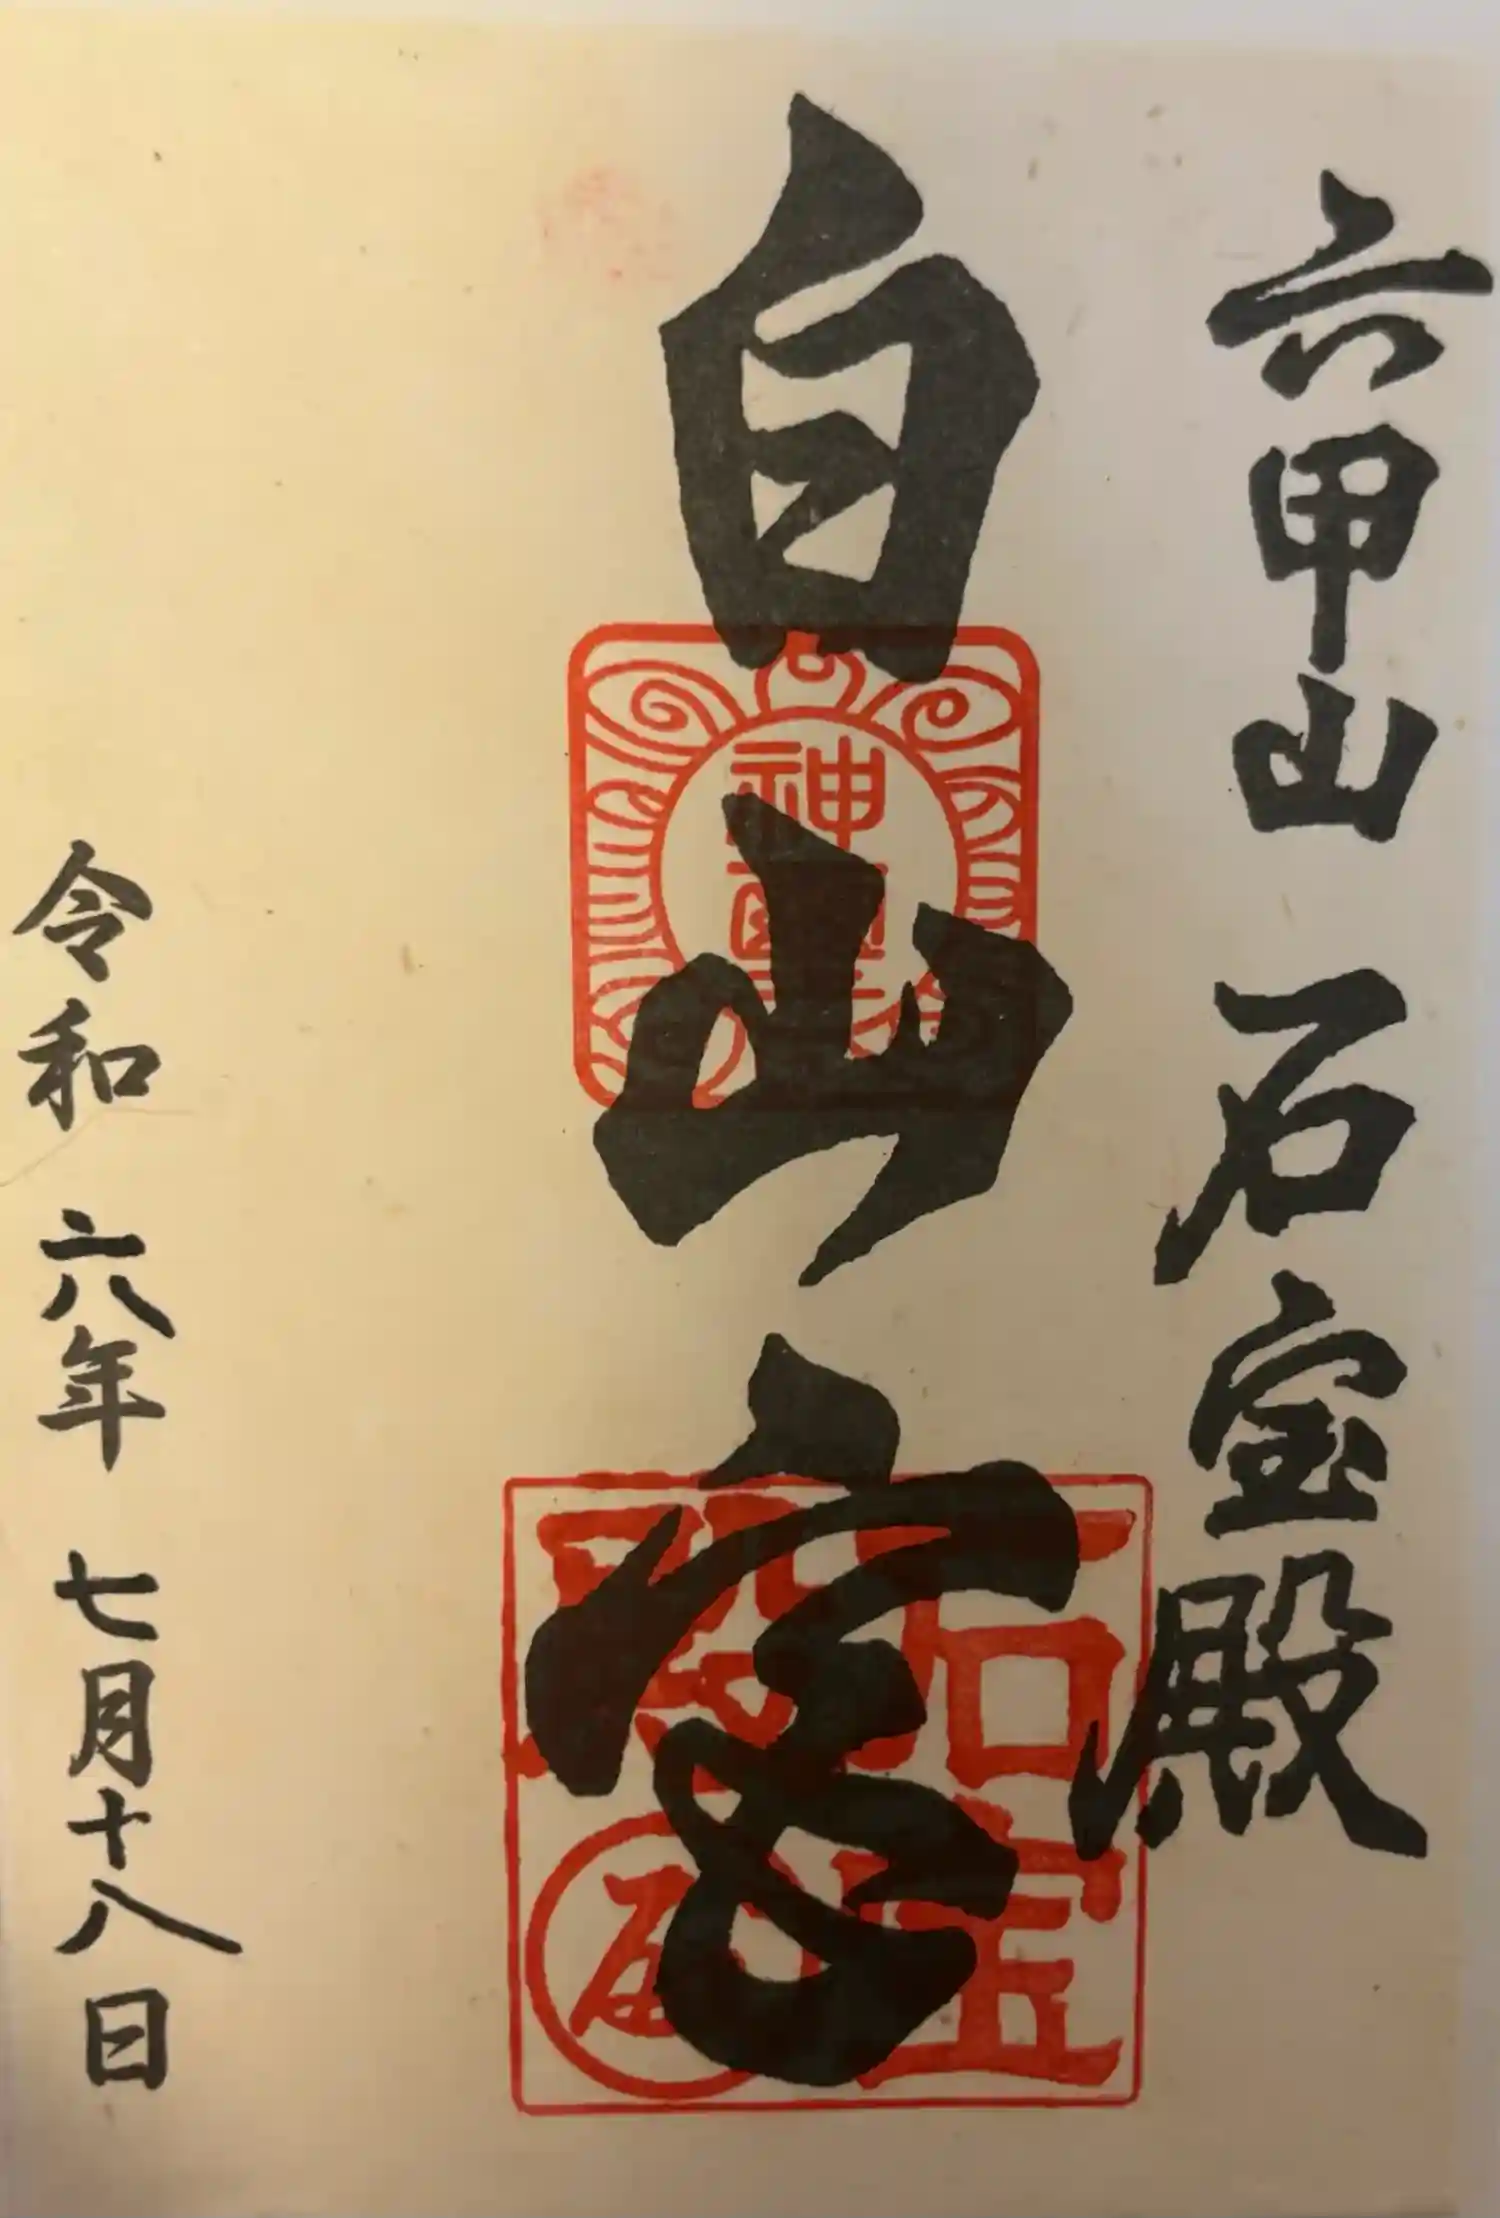 六甲山 石宝殿
白山宮
令和 六年 七月十八日
石宝
神